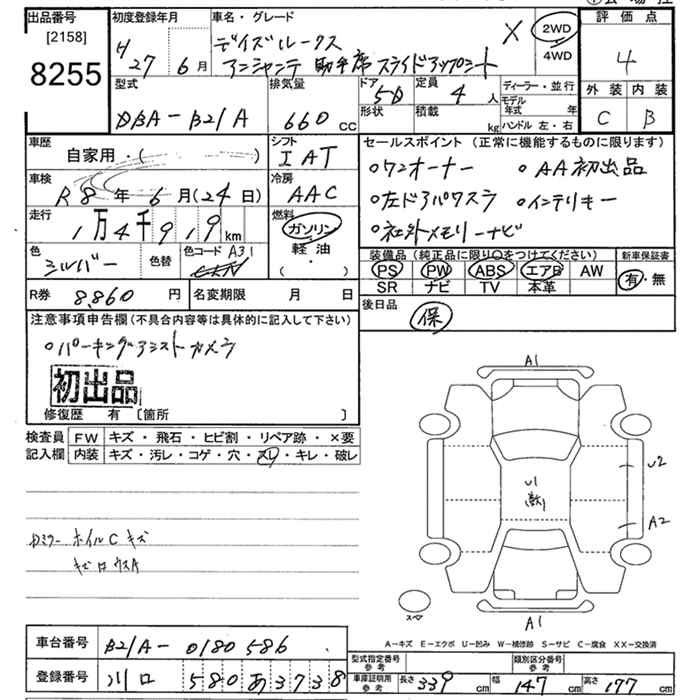 出品番号 初度登録年月 車名・グレード 評価点
[2158] 8255
H 27年 6月 デイズルークス X 2WD 4WD 4
アンシャンテ 助手席スライドアップシート
外装 内装
C B
型式 排気量 ドア 定員 ディーラー・並行
DBA-B21A 660cc 5D 4人 モデル年式 年
形状 積載 kg ハンドル 左・右
車歴 シフト セールスポイント (正常に機能するものに限ります)
自家用・( ) IAT
○ワンオーナー ○AA初出品
車検 冷房
R8年 6月(24日) AAC ○左ドアパワスラ ○インテリキー
走行 燃料
1万4千919km ガソリン・軽油・( ) ○社外メモリーナビ
色 色替 色コード A31
シルバー
装備品 (純正品に限り○をつけてください) 新車保証書
PS PW ABS エアB AW 有・無
SR ナビ TV 本革
R券 8,860円 名変期限 月 日 後日品 保
注意事項申告欄 (不具合内容等は具体的に記入して下さい)
○パーキングアシストカメラ
初出品
修復歴 有 [箇所 ]
検査員記入欄 FW キズ・飛石・ヒビ割・リペア跡・×要
内装 キズ・汚レ・コゲ・穴・スレ・キレ・破レ
A1
U2
U1
A2
ホイルCキズ
スペア
A1
A-キズ E-エクボ U-凹み W-補修跡 S-サビ C-腐食 XX-交換済
車台番号 B21A-0180586
型式指定番号 参考 類別区分番号 参考
登録番号 川口 580 あ 3738
車庫証明用 参考 長さ 339cm 幅 147cm 高さ 177cm